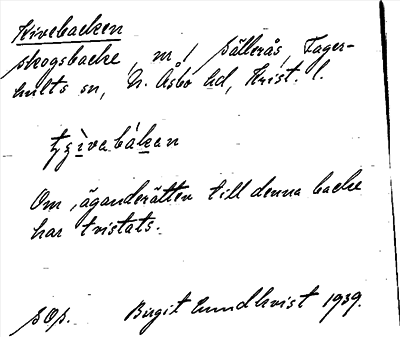 Kivebacken
skogsbacke, m, Sälleråş, Fager-
hults sn, N. Åsbo hd, Krist. l.
Om äganderätten till denna backe
har tvistats.
sOp. Birgit Lundkvist 1939.